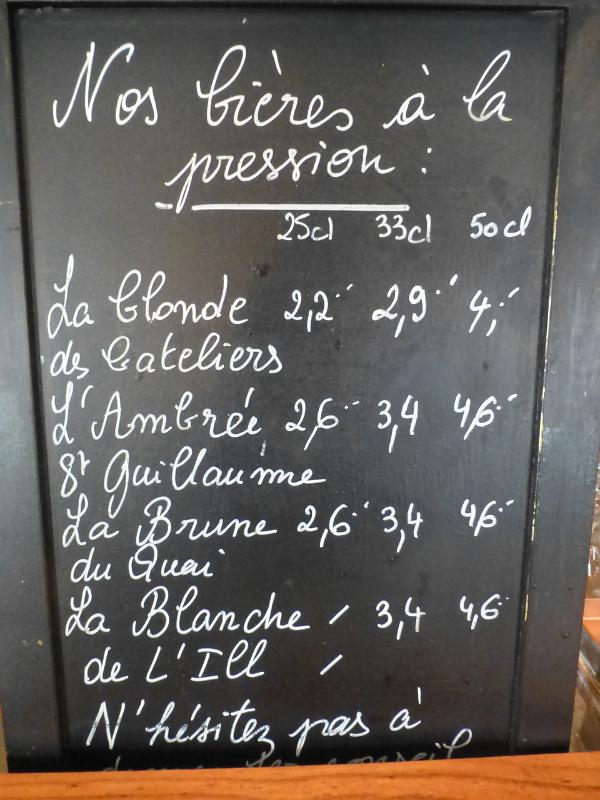 Nos bières à la
pression :
25cl 33cl 50cl
La blonde 2,2 2,9 4,-
des bateliers
L'Ambrée 2,6 3,4 4,6
St Guillaume
La Brune 2,6 3,4 4,6
du Quai
La Blanche / 3,4 4,6
de L'Ill /
N'hésitez pas à
conseil